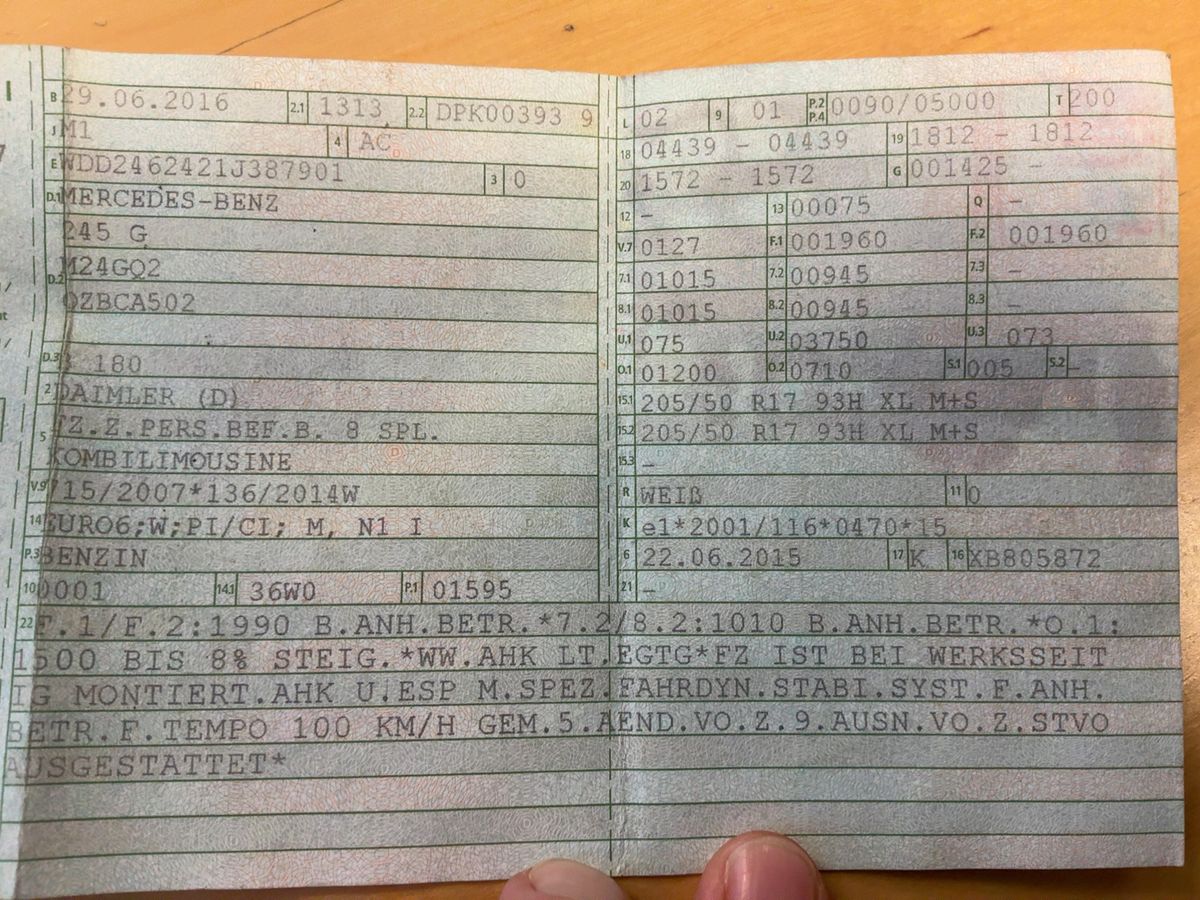 B 29.06.2016 2.1 1313 2.2 DPK00393 9
J M1 4 AC
E WDD2462421J387901 3 0
D.1 MERCEDES-BENZ
245 G
D.2 M24GQ2
QZBCA502
D.3 B 180
2 DAIMLER (D)
5 FZ.Z.PERS.BEF.B. 8 SPL.
KOMBILIMOUSINE
V.9 715/2007*136/2014W
14 EURO6;W;PI/CI; M, N1 I
P.3 BENZIN
10 0001 14.1 36W0 P.1 01595
L 02 9 01 P.2 P.4 0090/05000 T 200
18 04439 - 04439 19 1812 - 1812
20 1572 - 1572 G 001425 -
12 - 13 00075 Q -
V.7 0127 F.1 001960 F.2 001960
7.1 01015 7.2 00945 7.3 -
8.1 01015 8.2 00945 8.3 -
U.1 075 U.2 03750 U.3 073
O.1 01200 O.2 0710 S.1 005 S.2 -
15.1 205/50 R17 93H XL M+S
15.2 205/50 R17 93H XL M+S
15.3 -
R WEIß 11 0
K e1*2001/116*0470*15
6 22.06.2015 17 K 16 XB805872
21 -
22 F.1/F.2:1990 B.ANH.BETR.*7.2/8.2:1010 B.ANH.BETR.*O.1:
1500 BIS 8% STEIG.*WW.AHK LT.EGTG*FZ IST BEI WERKSSEIT
IG MONTIERT.AHK U.ESP M.SPEZ.FAHRDYN.STABI.SYST.F.ANH.
BETR.F.TEMPO 100 KM/H GEM.5.AEND.VO.Z.9.AUSN.VO.Z.STVO
AUSGESTATTET*